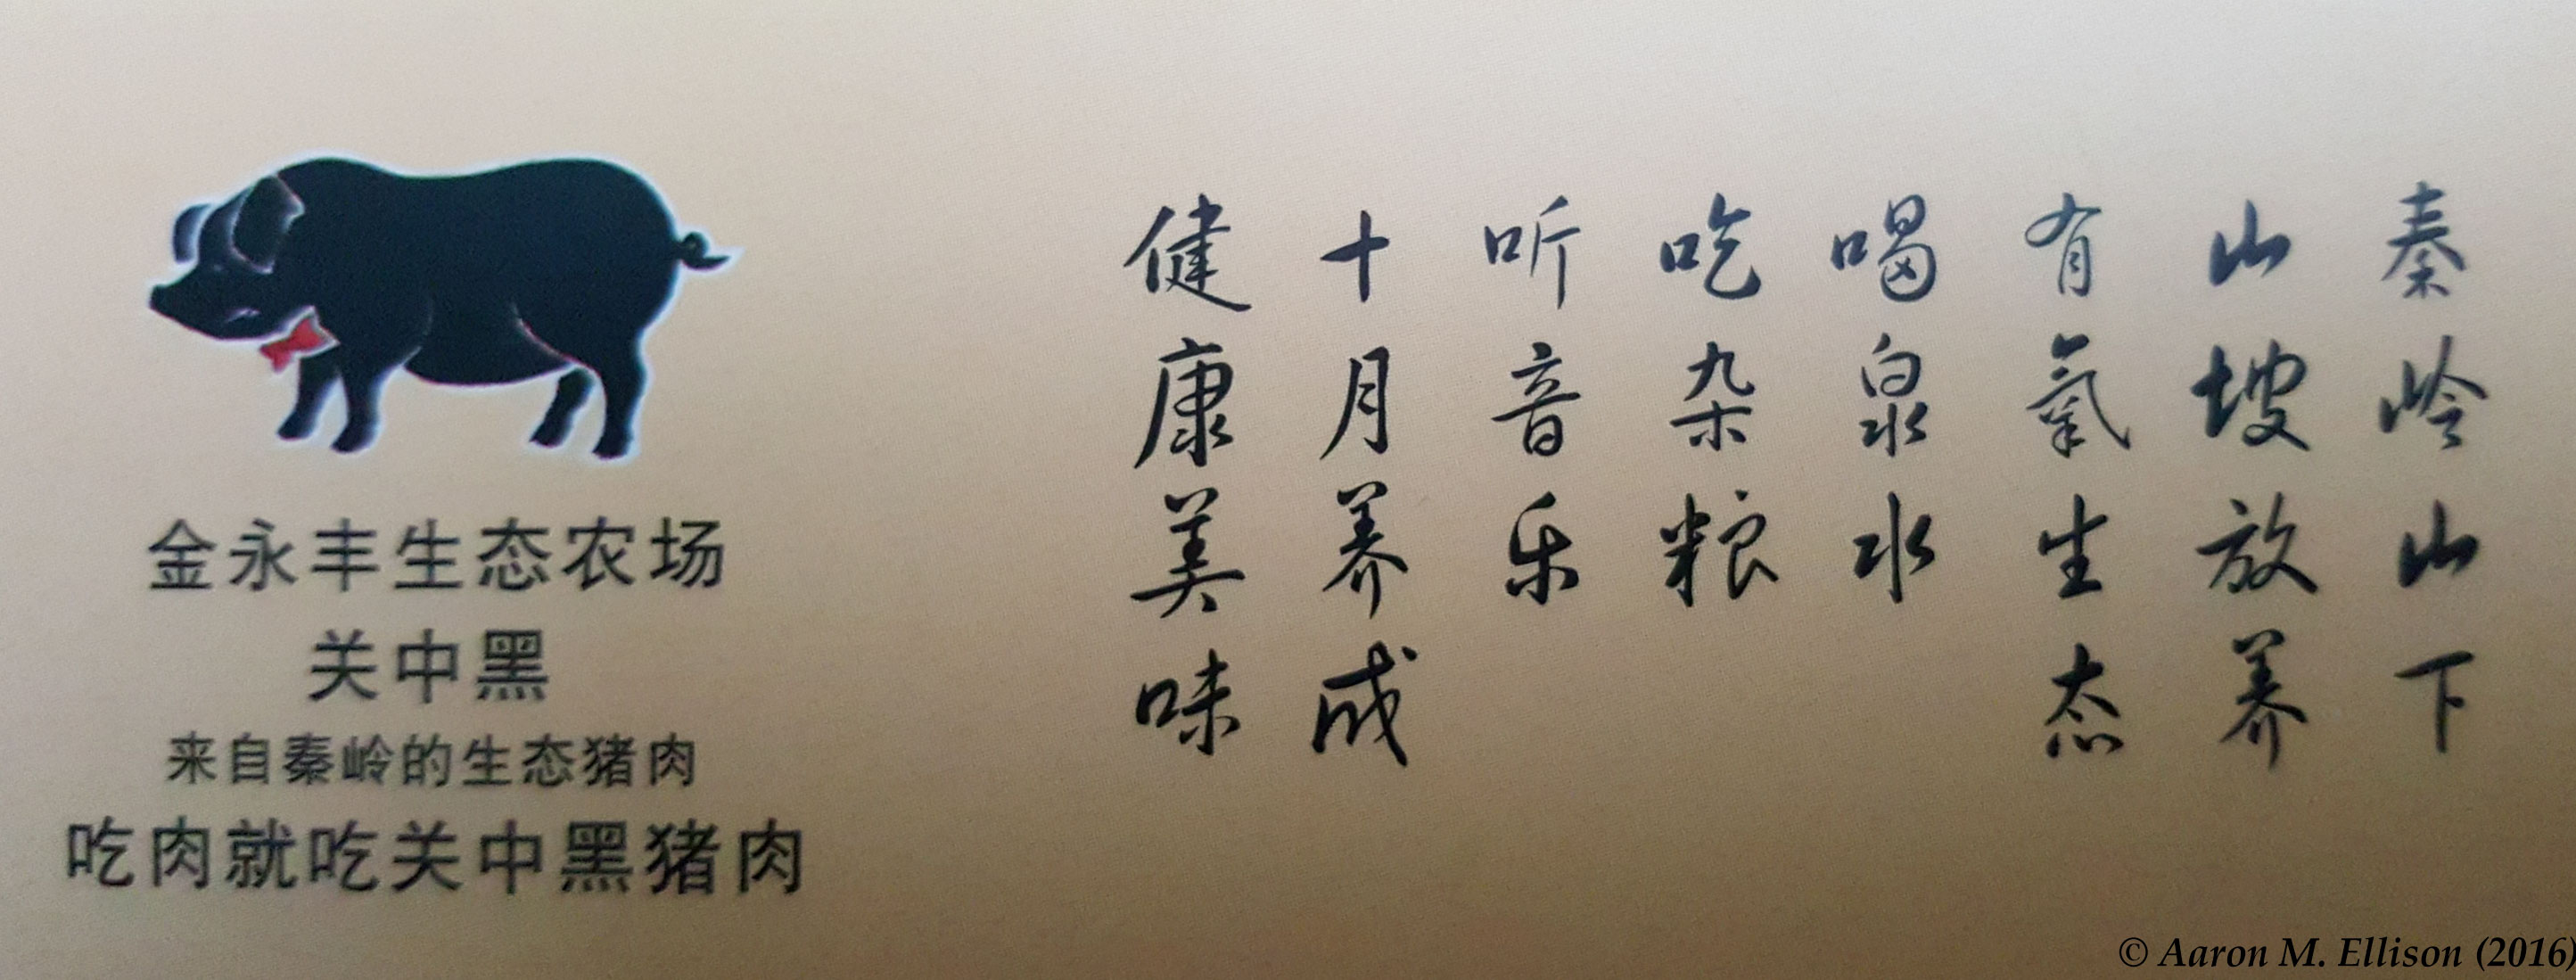 金永丰生态农场
关中黑
来自秦岭的生态猪肉
吃肉就吃关中黑猪肉
秦岭山下
山坡放养
有氧生态
喝泉水
吃杂粮
听音乐
十月养成
健康美味
© Aaron M. Ellison (2016)